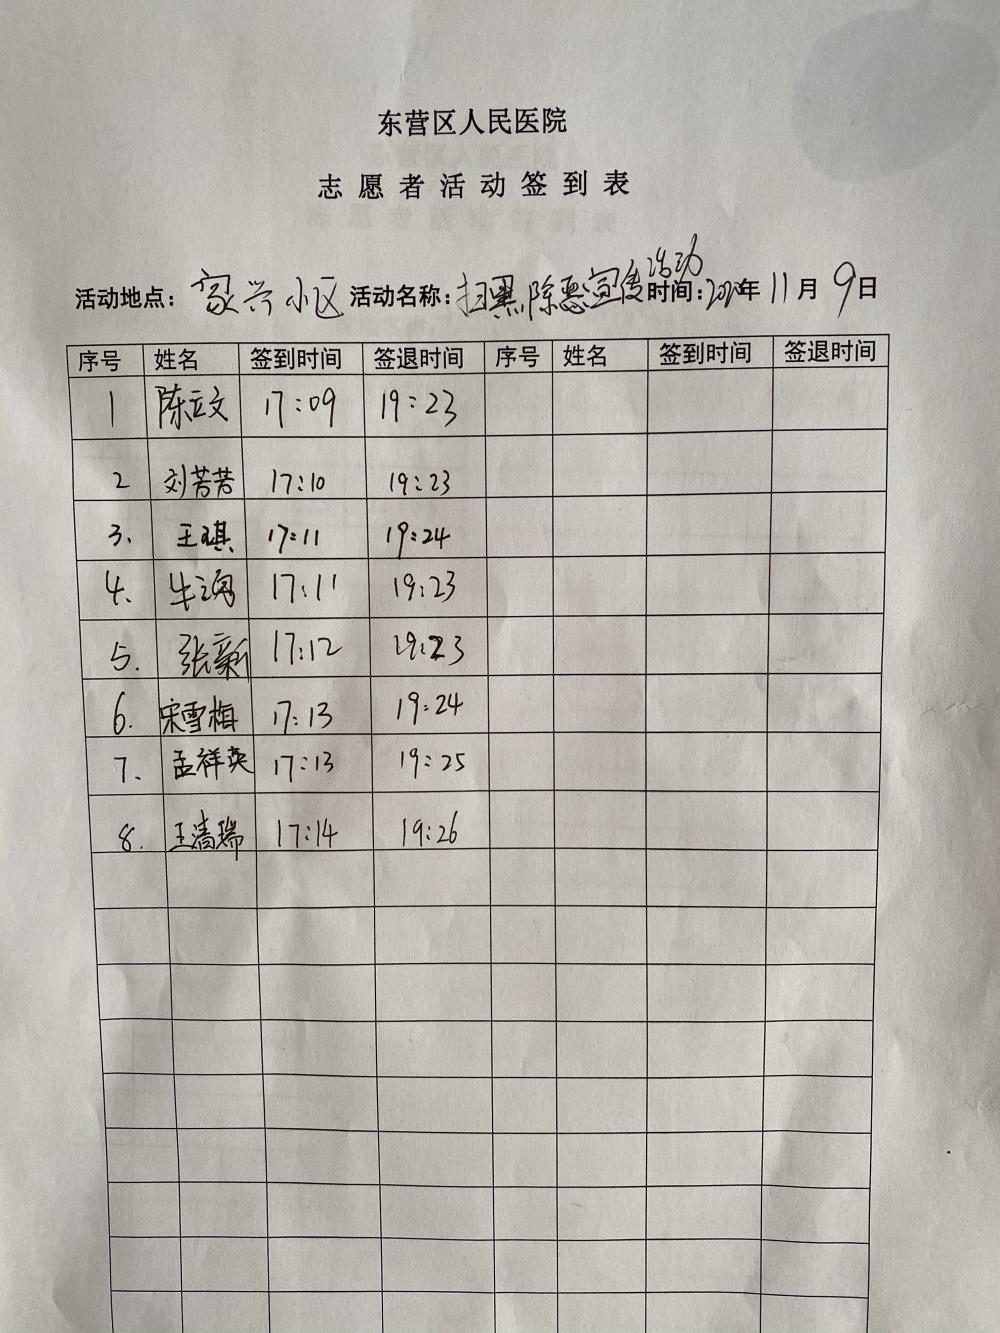 东营区人民医院
志愿者活动签到表
活动地点：家兴小区 活动名称：扫黑除恶宣传活动 时间：2020年11月9日
序号 姓名 签到时间 签退时间 序号 姓名 签到时间 签退时间
1 陈立文 17:09 19:23
2 刘芳芳 17:10 19:23
3. 王琪 17:11 19:24
4、 牛海 17:11 19:23
5. 张新 17:12 19:23
6. 宋雪梅 17:13 19:24
7、 孟祥英 17:13 19:25
8. 王清瑞 17:14 19:26